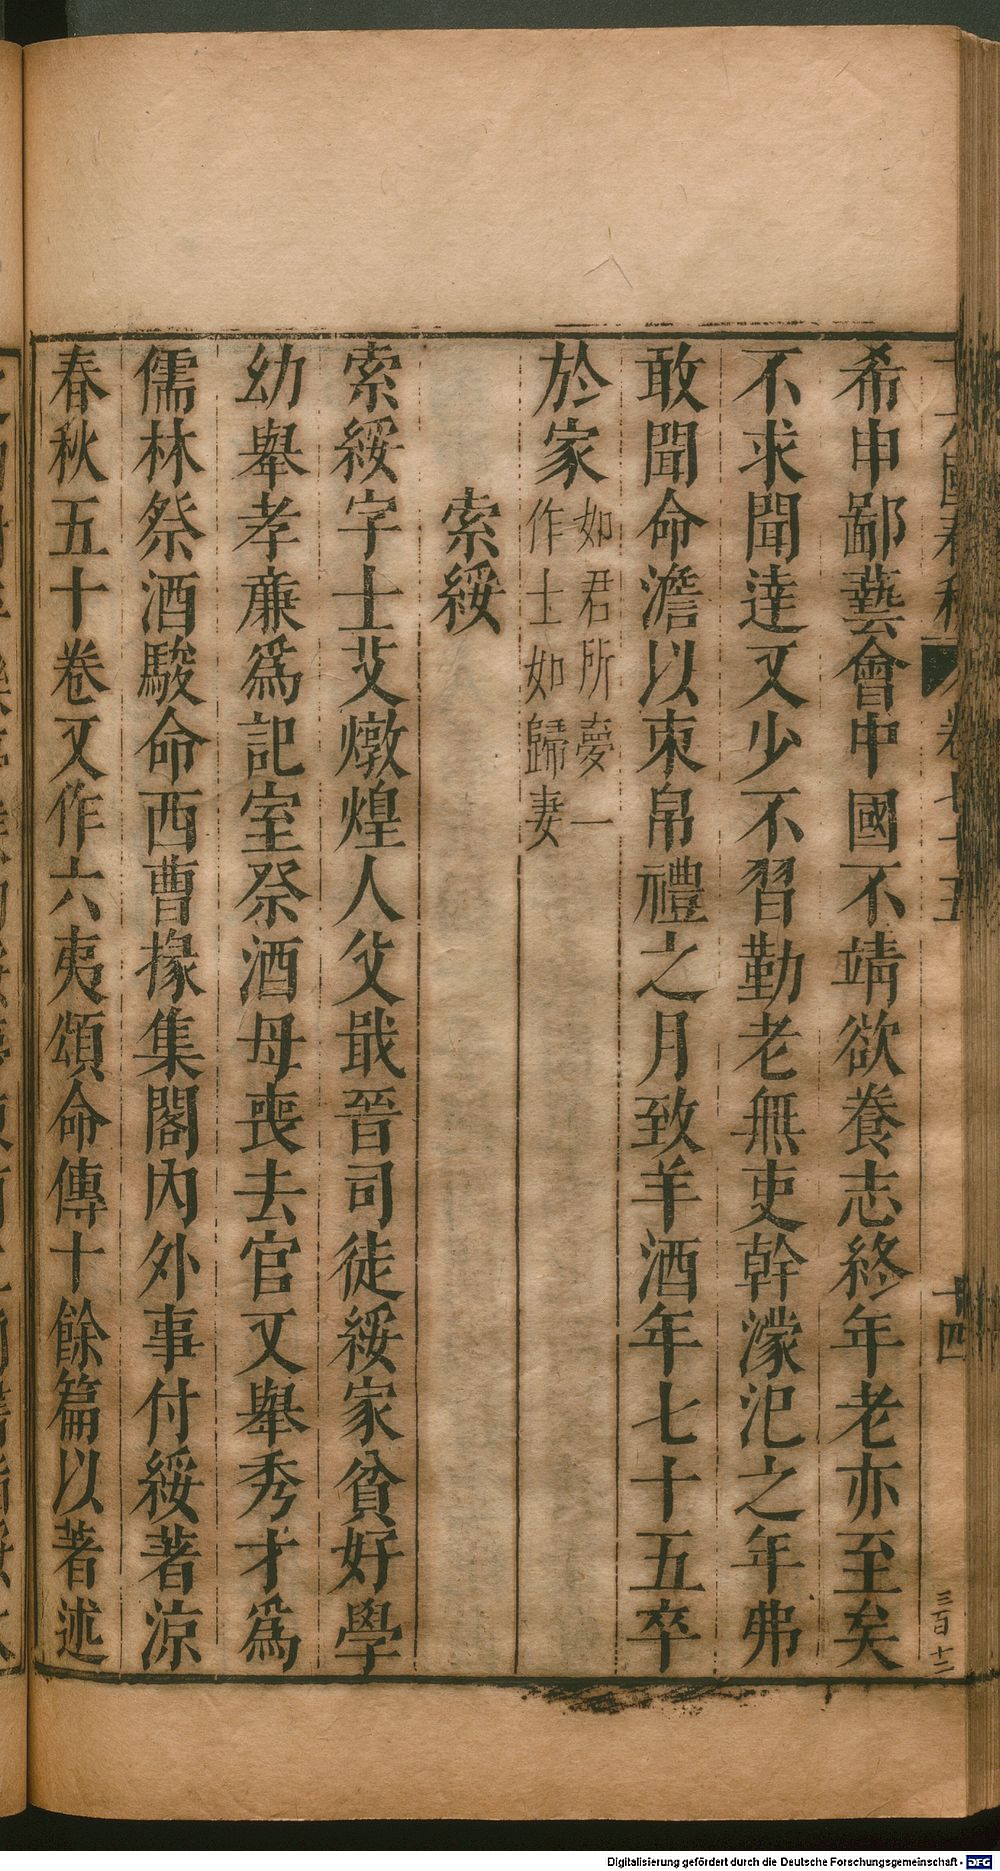 十六國春秋 卷七十五 十四 三百十二
希申鄙藝會中國不靖欲養志終年老亦至矣
不求聞達又少不習勤老無吏幹濛汜之年弗
敢聞命澹以束帛禮之月致羊酒年七十五卒
於家如君所夢一
作士如歸妻
索綏
索綏字士艾燉煌人父戢晉司徒綏家貧好學
幼舉孝廉爲記室祭酒母喪去官又舉秀才爲
儒林祭酒駿命西曹掾集閣內外事付綏著涼
春秋五十卷又作六夷頌命傳十餘篇以著述
Digitalisierung gefördert durch die Deutsche Forschungsgemeinschaft - DFG